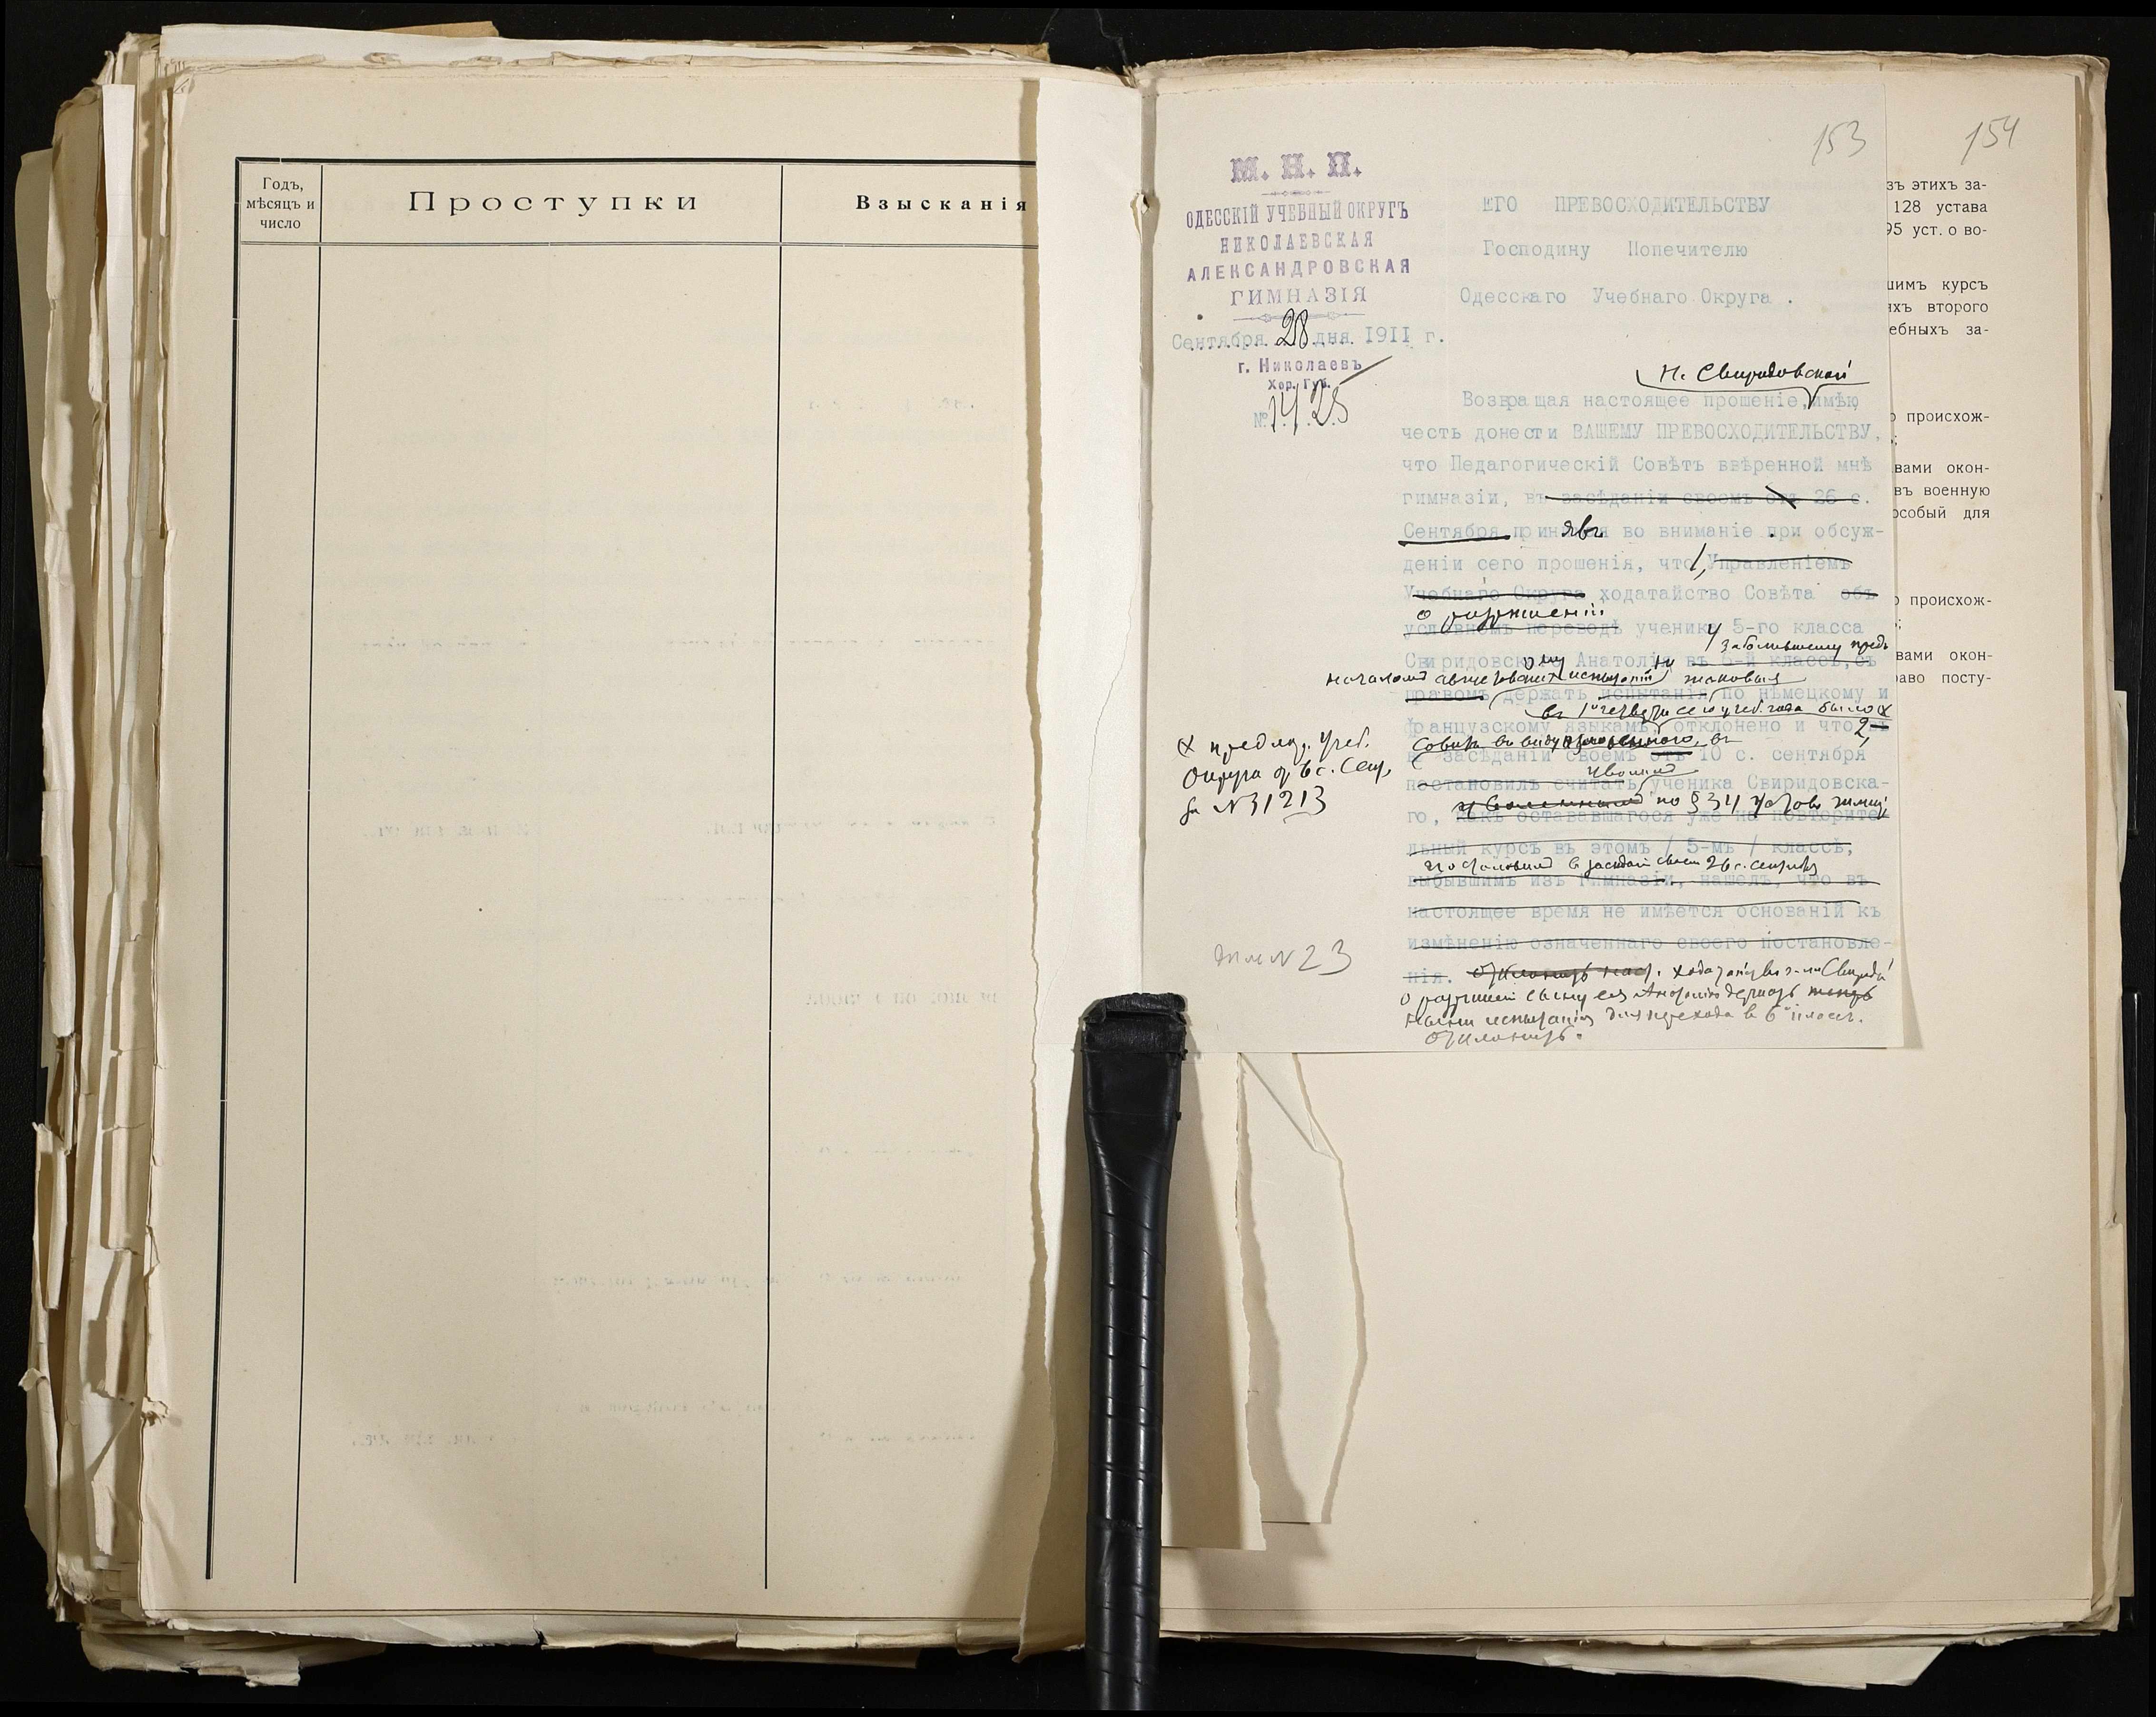 Годъ,
мѣсяцъ и
число
Проступки
Взысканія
153
154
М. Н. П.
ОДЕССКІЙ УЧЕБНЫЙ ОКРУГЪ
НИКОЛАЕВСКАЯ
АЛЕКСАНДРОВСКАЯ
ГИМНАЗІЯ
Сентября 28 дня 1911 г.
г. Николаевъ
Хер. Губ.
№ 1425
ЕГО ПРЕВОСХОДИТЕЛЬСТВУ
Господину Попечителю
Одесскаго Учебнаго Округа .
Н. Свиридовской
Возвращая настоящее прошеніе, имѣю
честь донести ВАШЕМУ ПРЕВОСХОДИТЕЛЬСТВУ,
что Педагогическій Совѣтъ ввѣренной мнѣ
гимназіи, въ засѣданіи своемъ отъ 26 с.
Сентября принявъ во вниманіе при обсуж-
деніи сего прошенія, что 1, Управленіемъ
Учебнаго Округа ходатайство Совѣта объ
о разрѣшеніи
условномъ переводѣ ученику 5-го класса
заболѣвшему предъ
Свиридовскому Анатолію въ 6-й классъ, съ
началомъ августовскихъ испытаній таковыя
правомъ держать испытанія по нѣмецкому и
въ 1 четверти сего учеб. года было х
французскому языкамъ, отклонено и что 2,
Совѣтъ въ виду изложеннаго, въ
засѣданіи своемъ отъ 10 с. сентября
уволилъ
постановилъ считать ученика Свиридовска-
уволеннымъ по § 34 устава гимназ.
го, какъ остававшагося уже на повторите-
льный курсъ въ этомъ / 5-мъ / классѣ,
постановилъ въ засѣданіи своемъ 26 с. сентября
выбывшимъ изъ гимназіи, нашелъ, что въ
настоящее время не имѣется основаній къ
измѣненію означеннаго своего постановле-
нія. Отклонить наст. ходатайство г-жи Свиридов.
о разрѣшеніи сыну ея Анатолію держать теперь
нынѣ испытанія для перехода въ 6й классъ.
Отклонить.
х предлож. Учеб.
Округа отъ 6 с. Сент.
за № 31213
№ 23
зъ этихъ за-
128 устава
95 уст. о во-
шимъ курсъ
яхъ второго
ебныхъ за-
о происхож-
вами окон-
въ военную
особый для
о происхож-
вами окон-
аво посту-